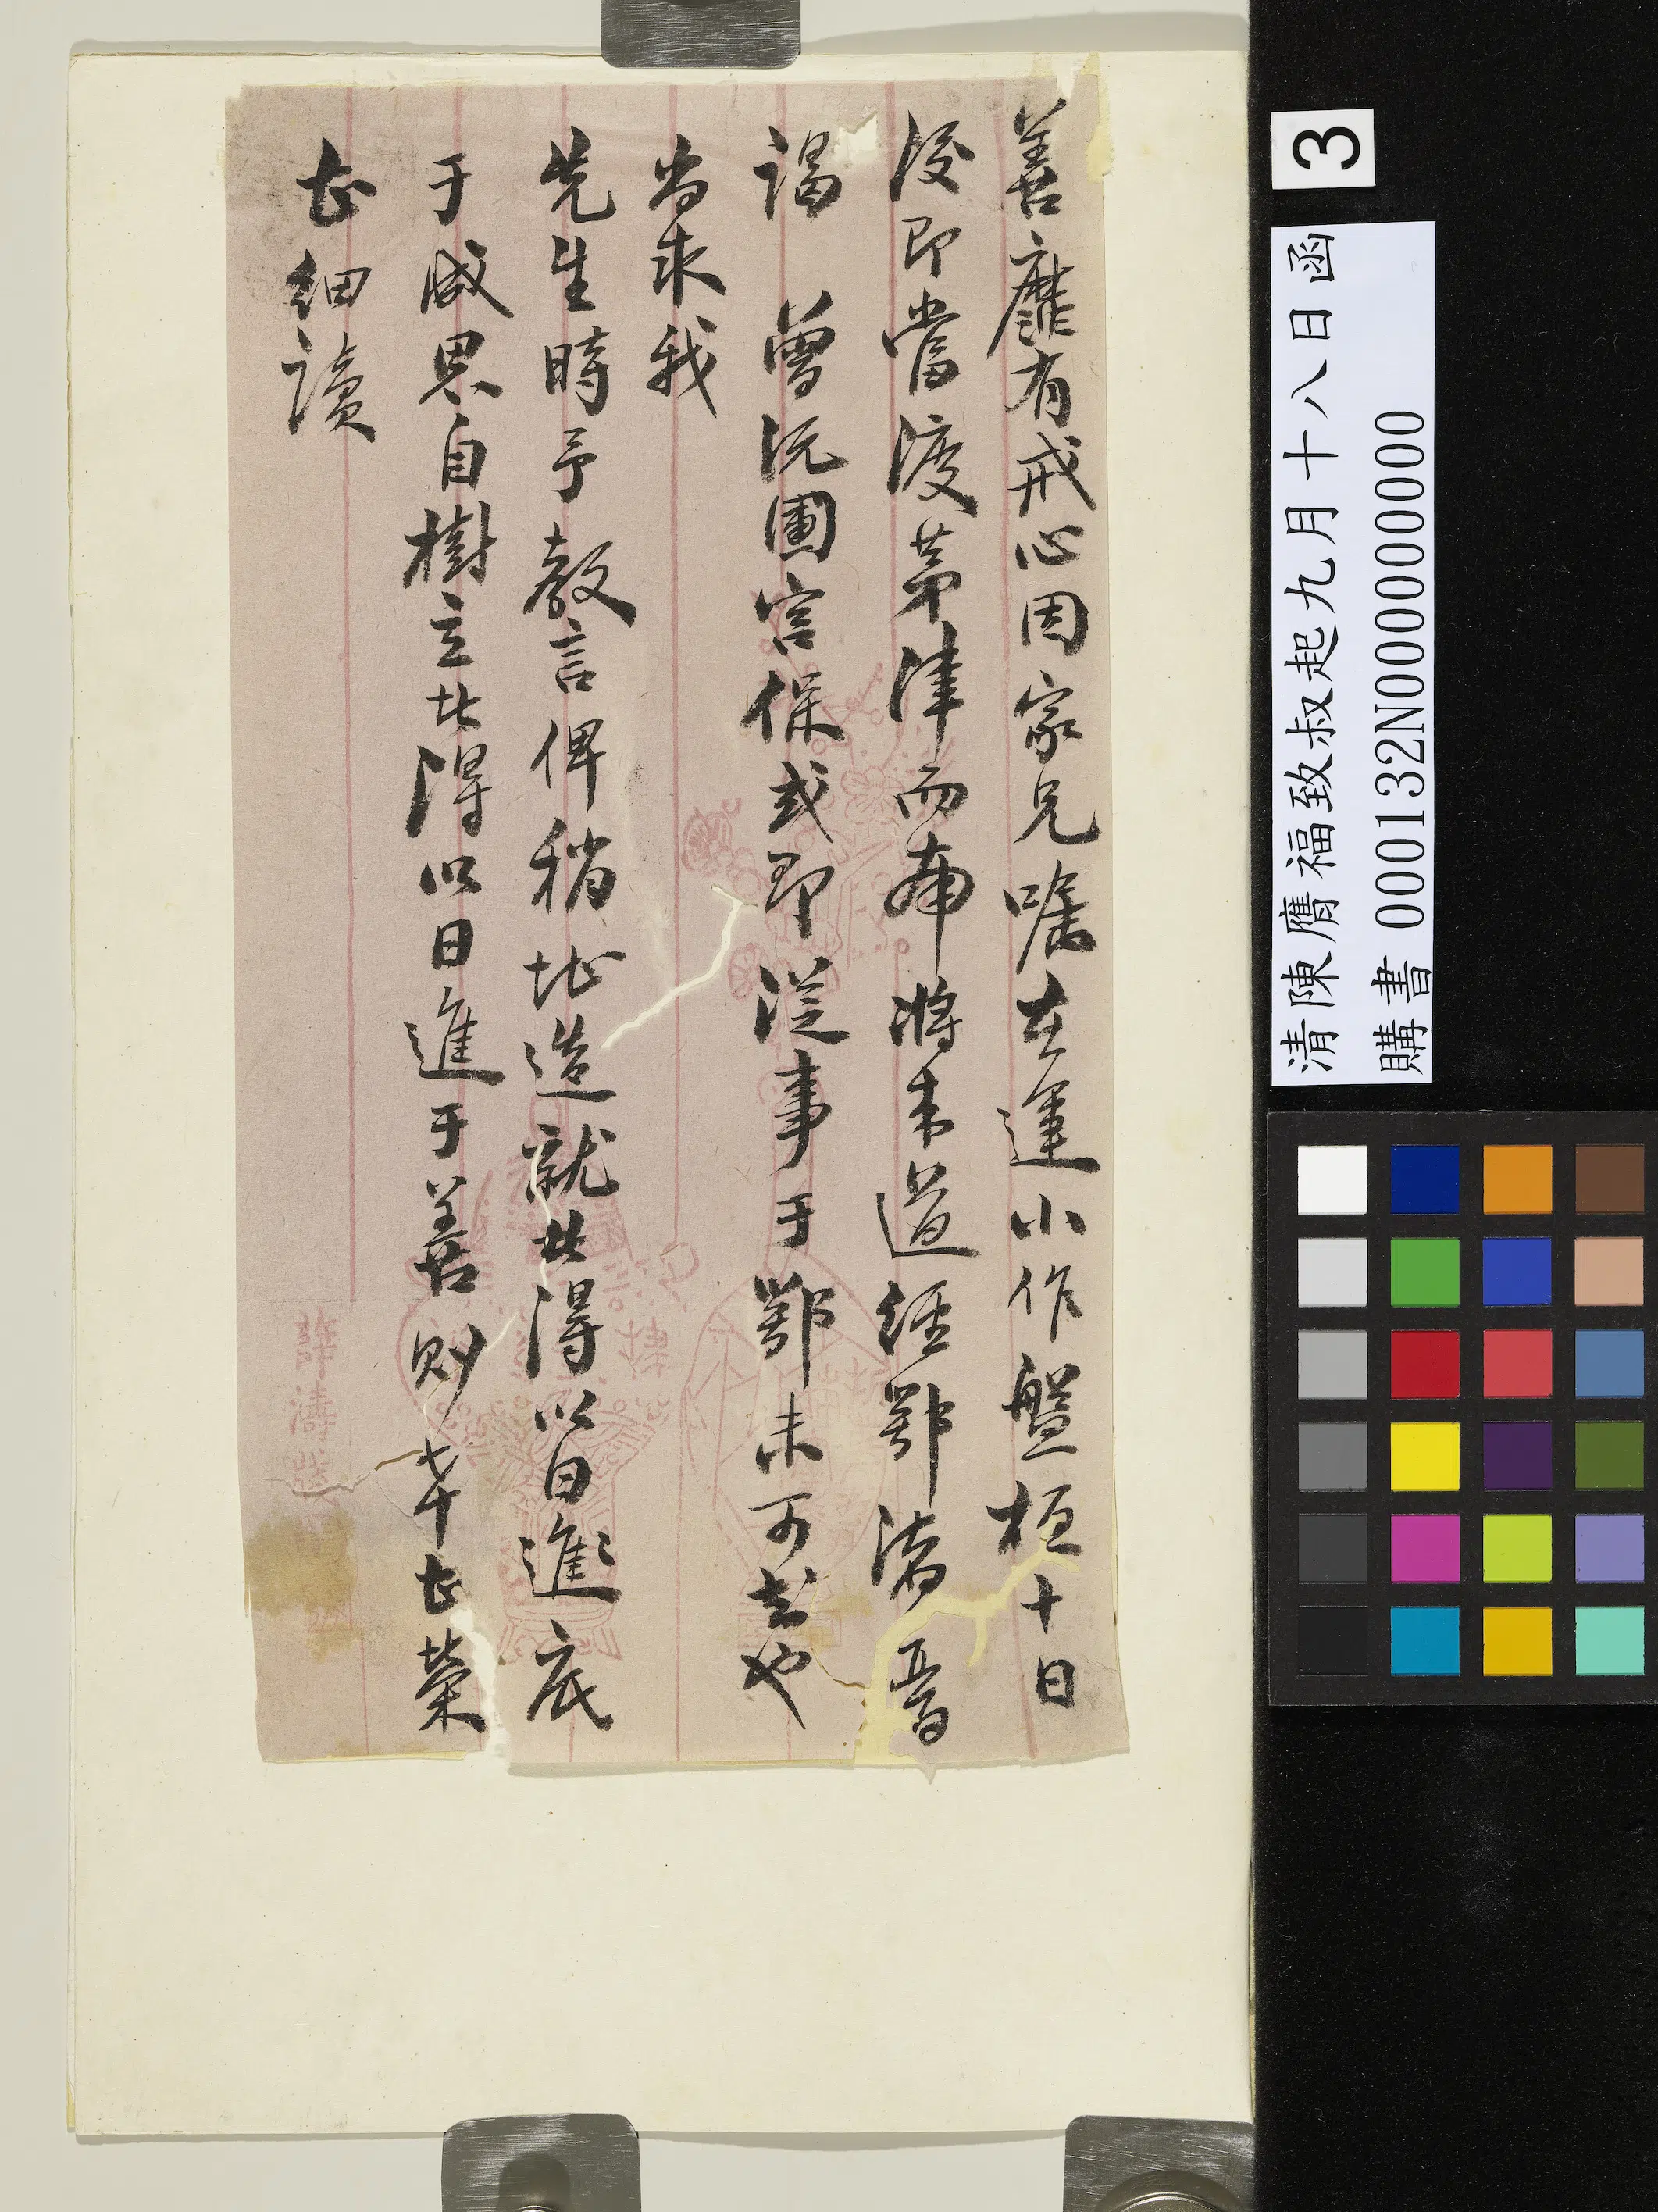 善靡有戒心因家兄囑在運小作盤桓十日
後即當渡茅津而南將來道經鄂渚晉
謁 曾沅圃宮保或即從事于鄂未可知也
尚求我
先生時予教言俾稍地造就此得以日進底
于成思自樹立此得以日進于善則幸甚榮
甚細讀
3
清陳膺福致叔起九月十八日函
購書 000132N000000000